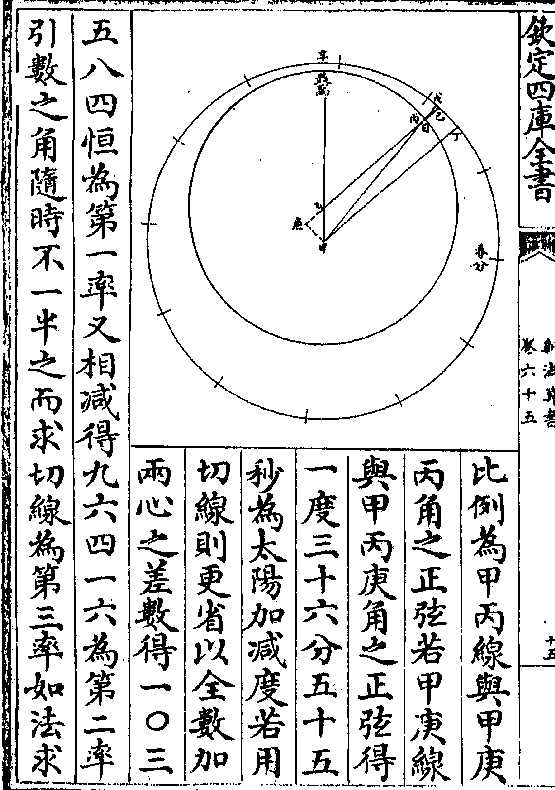 欽定四庫全書
新法算書
卷六十五
十五
比例為甲丙線與甲庚
丙角之正弦若甲庚線
與甲丙庚角之正弦得
一度三十六分五十五
秒為太陽加減度若用
切線則更省以全數加
兩心之差數得一〇三
五八四恒為第一率又相減得九六四一六為第二率
引數之角隨時不一半之而求切線為第三率如法求
辛
戊
己
丙
日
丁
乙
庚
甲
春分